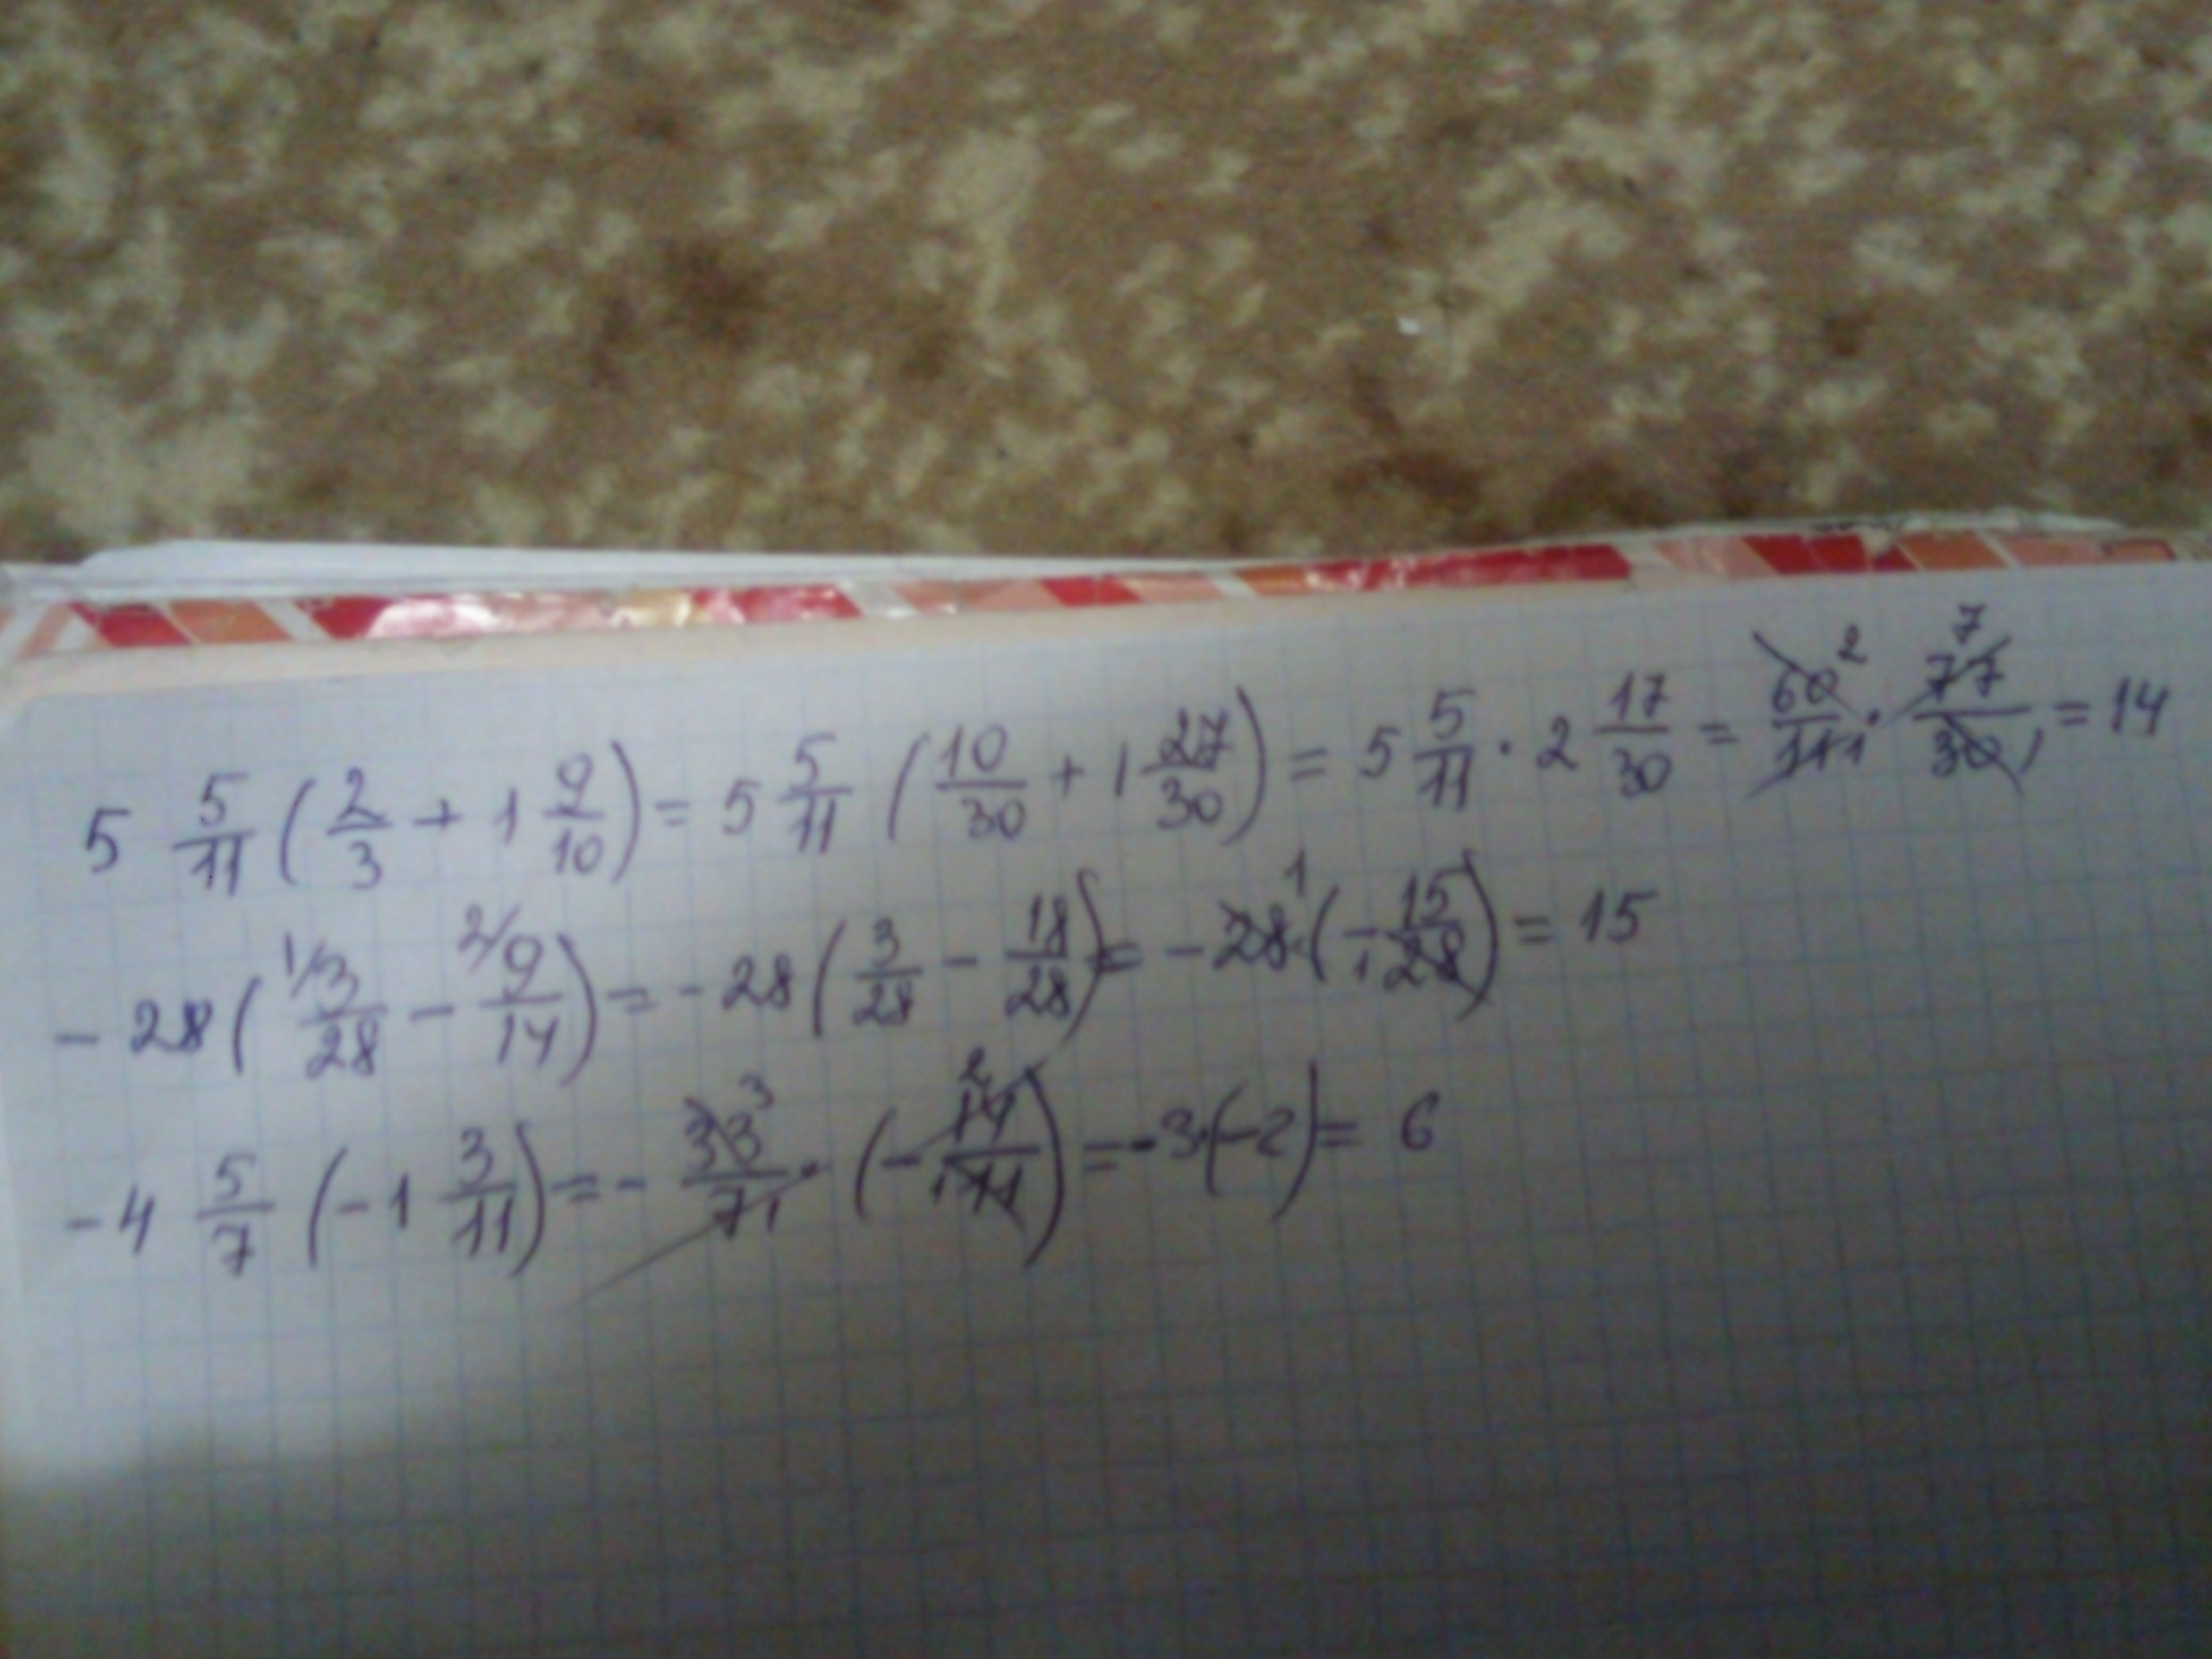 5 5/11 (2/3 + 1 9/10) = 5 5/11 (10/30 + 1 27/30) = 5 5/11 · 2 17/30 = 60²/11₁ · 77⁷/30₁ = 14
- 28 (¹/3/28 - ²/9/14) = - 28 (3/28 - 18/28) = - 28¹ · (- 15/₁28) = 15
- 4 5/7 (- 1 3/11) = - 33³/7₁ · (- 14²/₁11) = - 3 · (-2) = 6